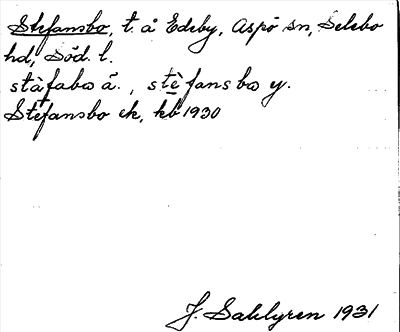 Stefansbo, t. å Edeby, Aspö sn, Selebo
hd, Söd. l.
stàfabo ä., stèfansbo y.
Stefansbo ek, kb 1930
J. Sahlgren 1931